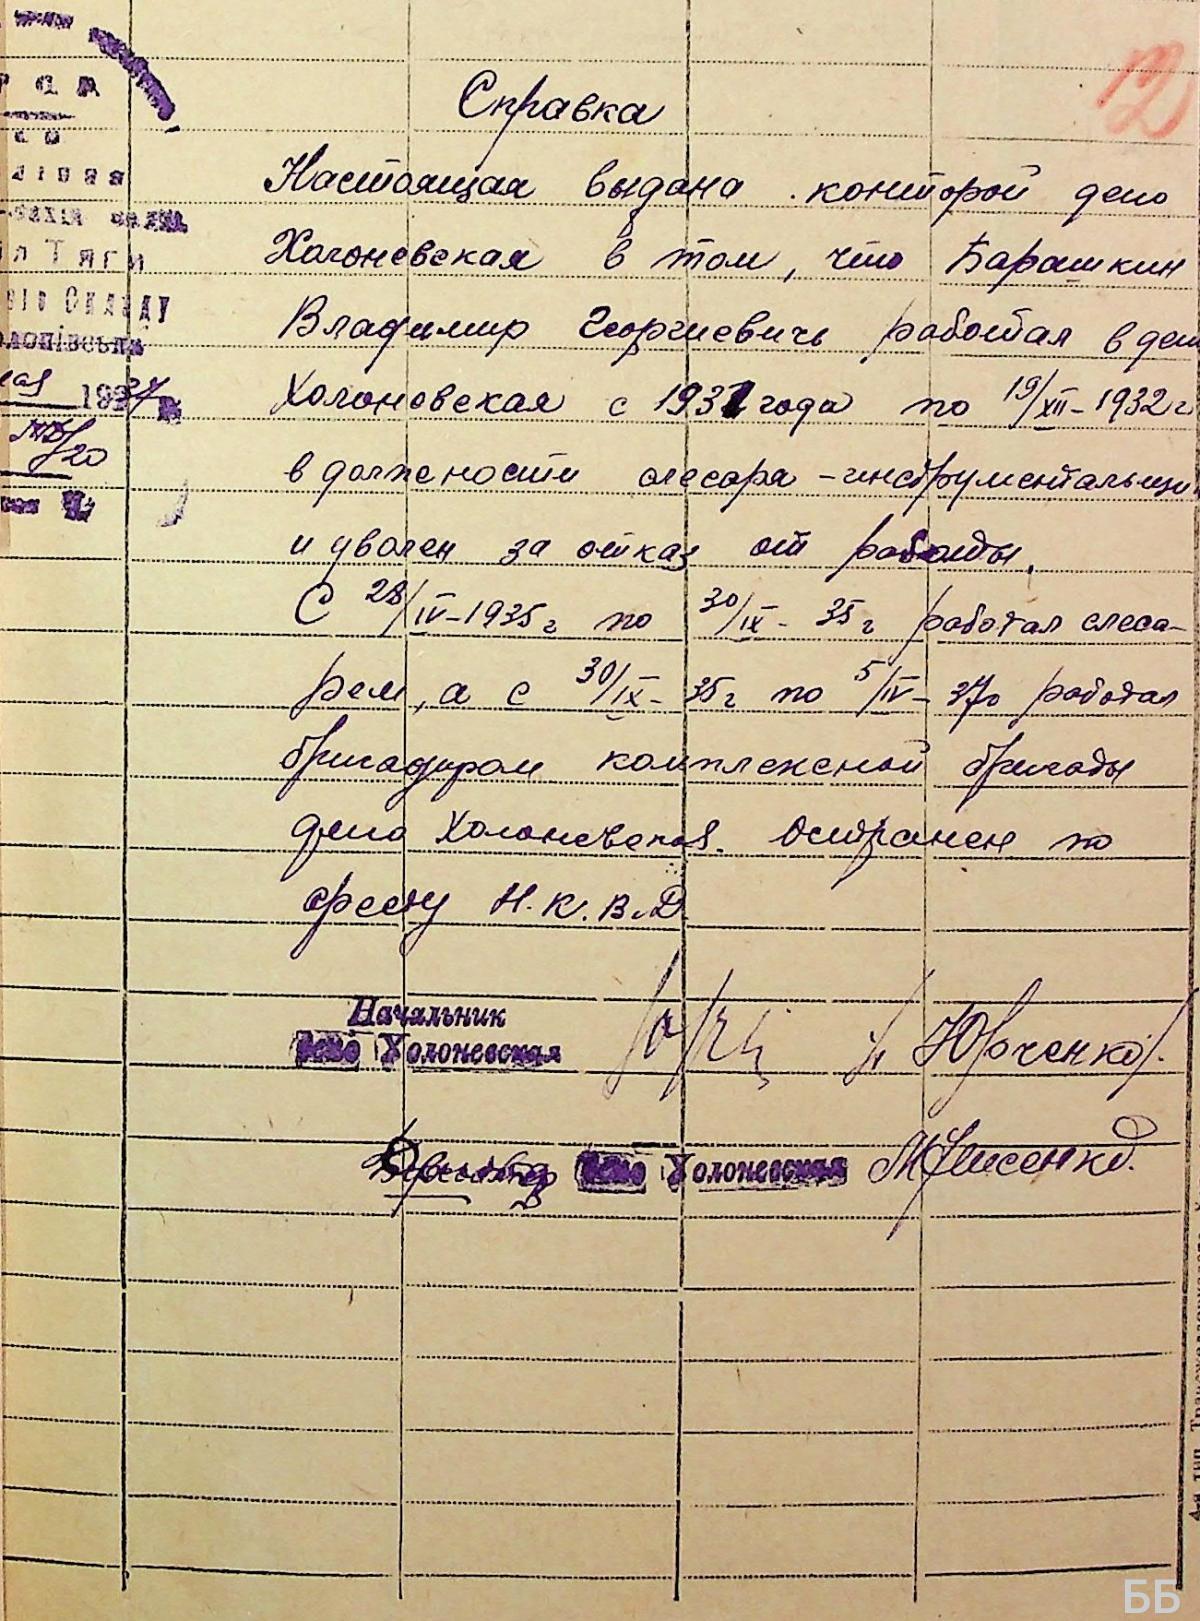 12
Справка
Настоящая выдана конторой депо
Холоневская в том, что Барашкин
Владимир Георгиевичь работал в деп
Холоневская с 1931 года по 19/XII-1932 г.
в должености слесаря-инструментальщи
и уволен за отказ от работы.
С 28/IV-1935 г по 30/IX-35 г работал слеса-
рем, а с 30/IX-35 г по 5/IV-37 работал
бригадиром комплексной бригады
депо Холоневская. Остранен по
аресту Н.К.В.Д
Начальник
депо Холоневская
/Юрченко/.
депо Холоневская
Тяги
Складу
1937
20
ББ